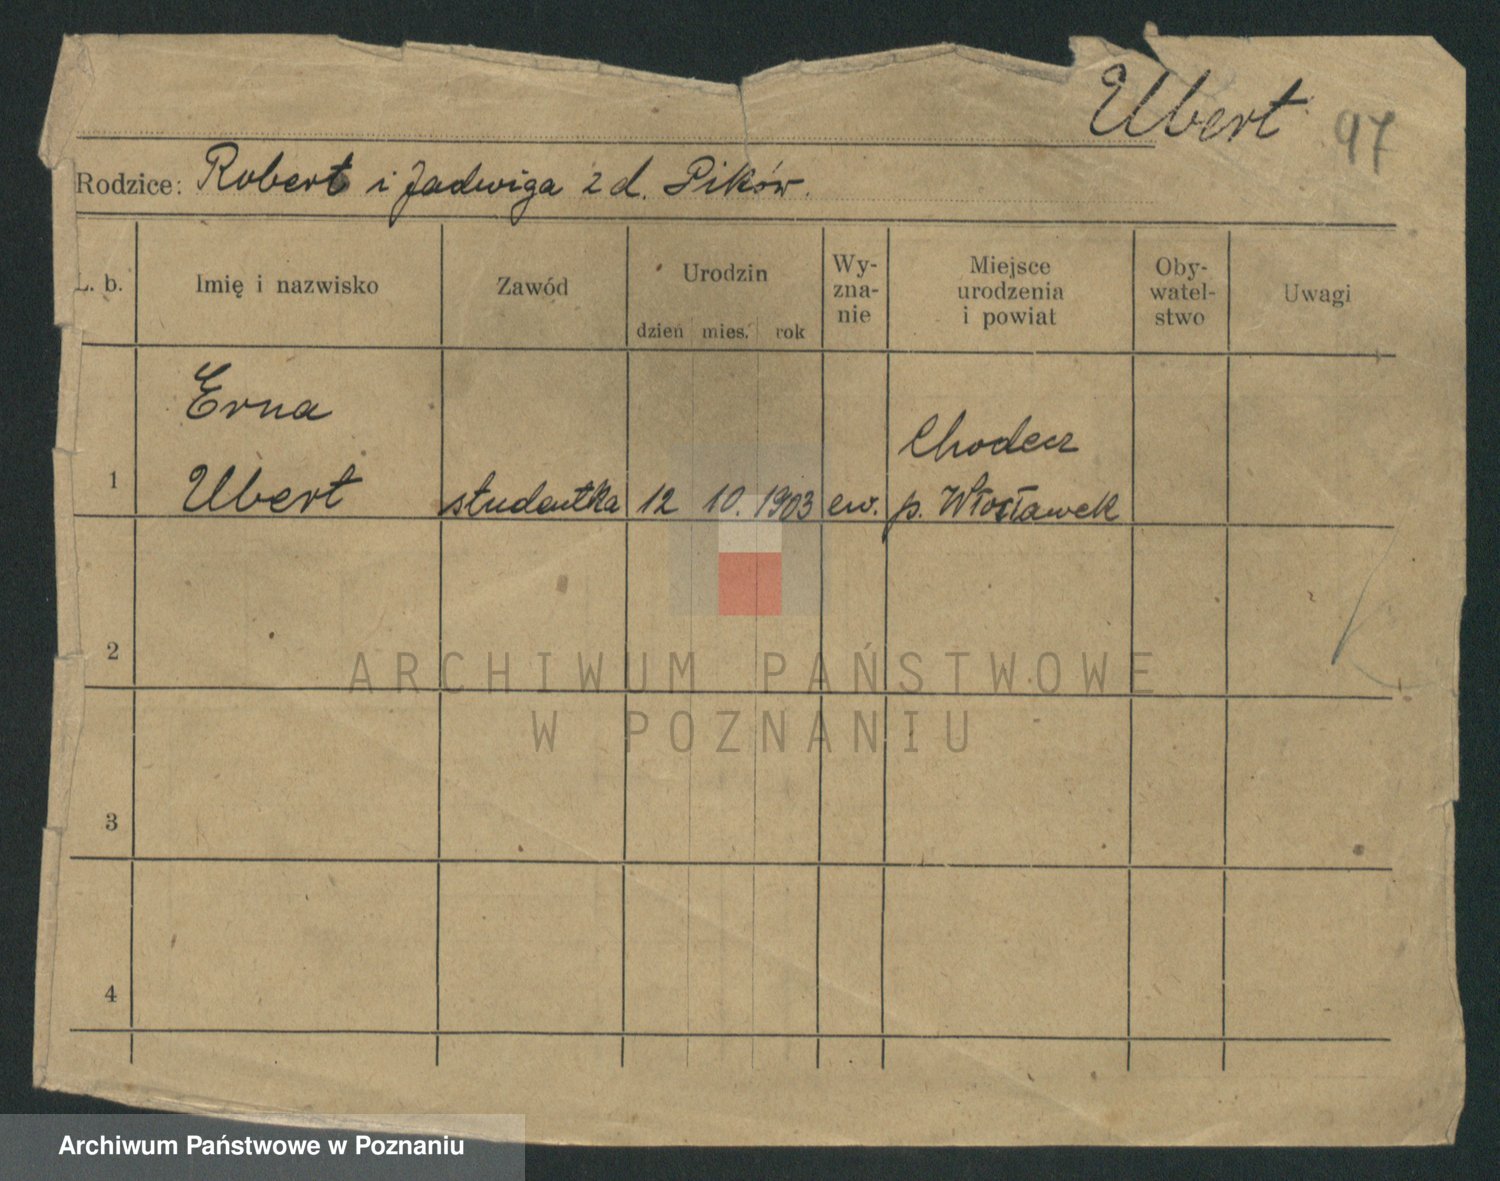 Ubert 97
Rodzice: Robert i Jadwiga z d. Pików.
L. b. Imię i nazwisko Zawód Urodzin dzień mies. rok Wy-zna-nie Miejsce urodzenia i powiat Oby-watel-stwo Uwagi
Erna
Chodecz
1 Ubert studentka 12 10. 1903 ew. p. Włosławek
2
ARCHIWUM PAŃSTWOWE
W POZNANIU
3
4
Archiwum Państwowe w Poznaniu